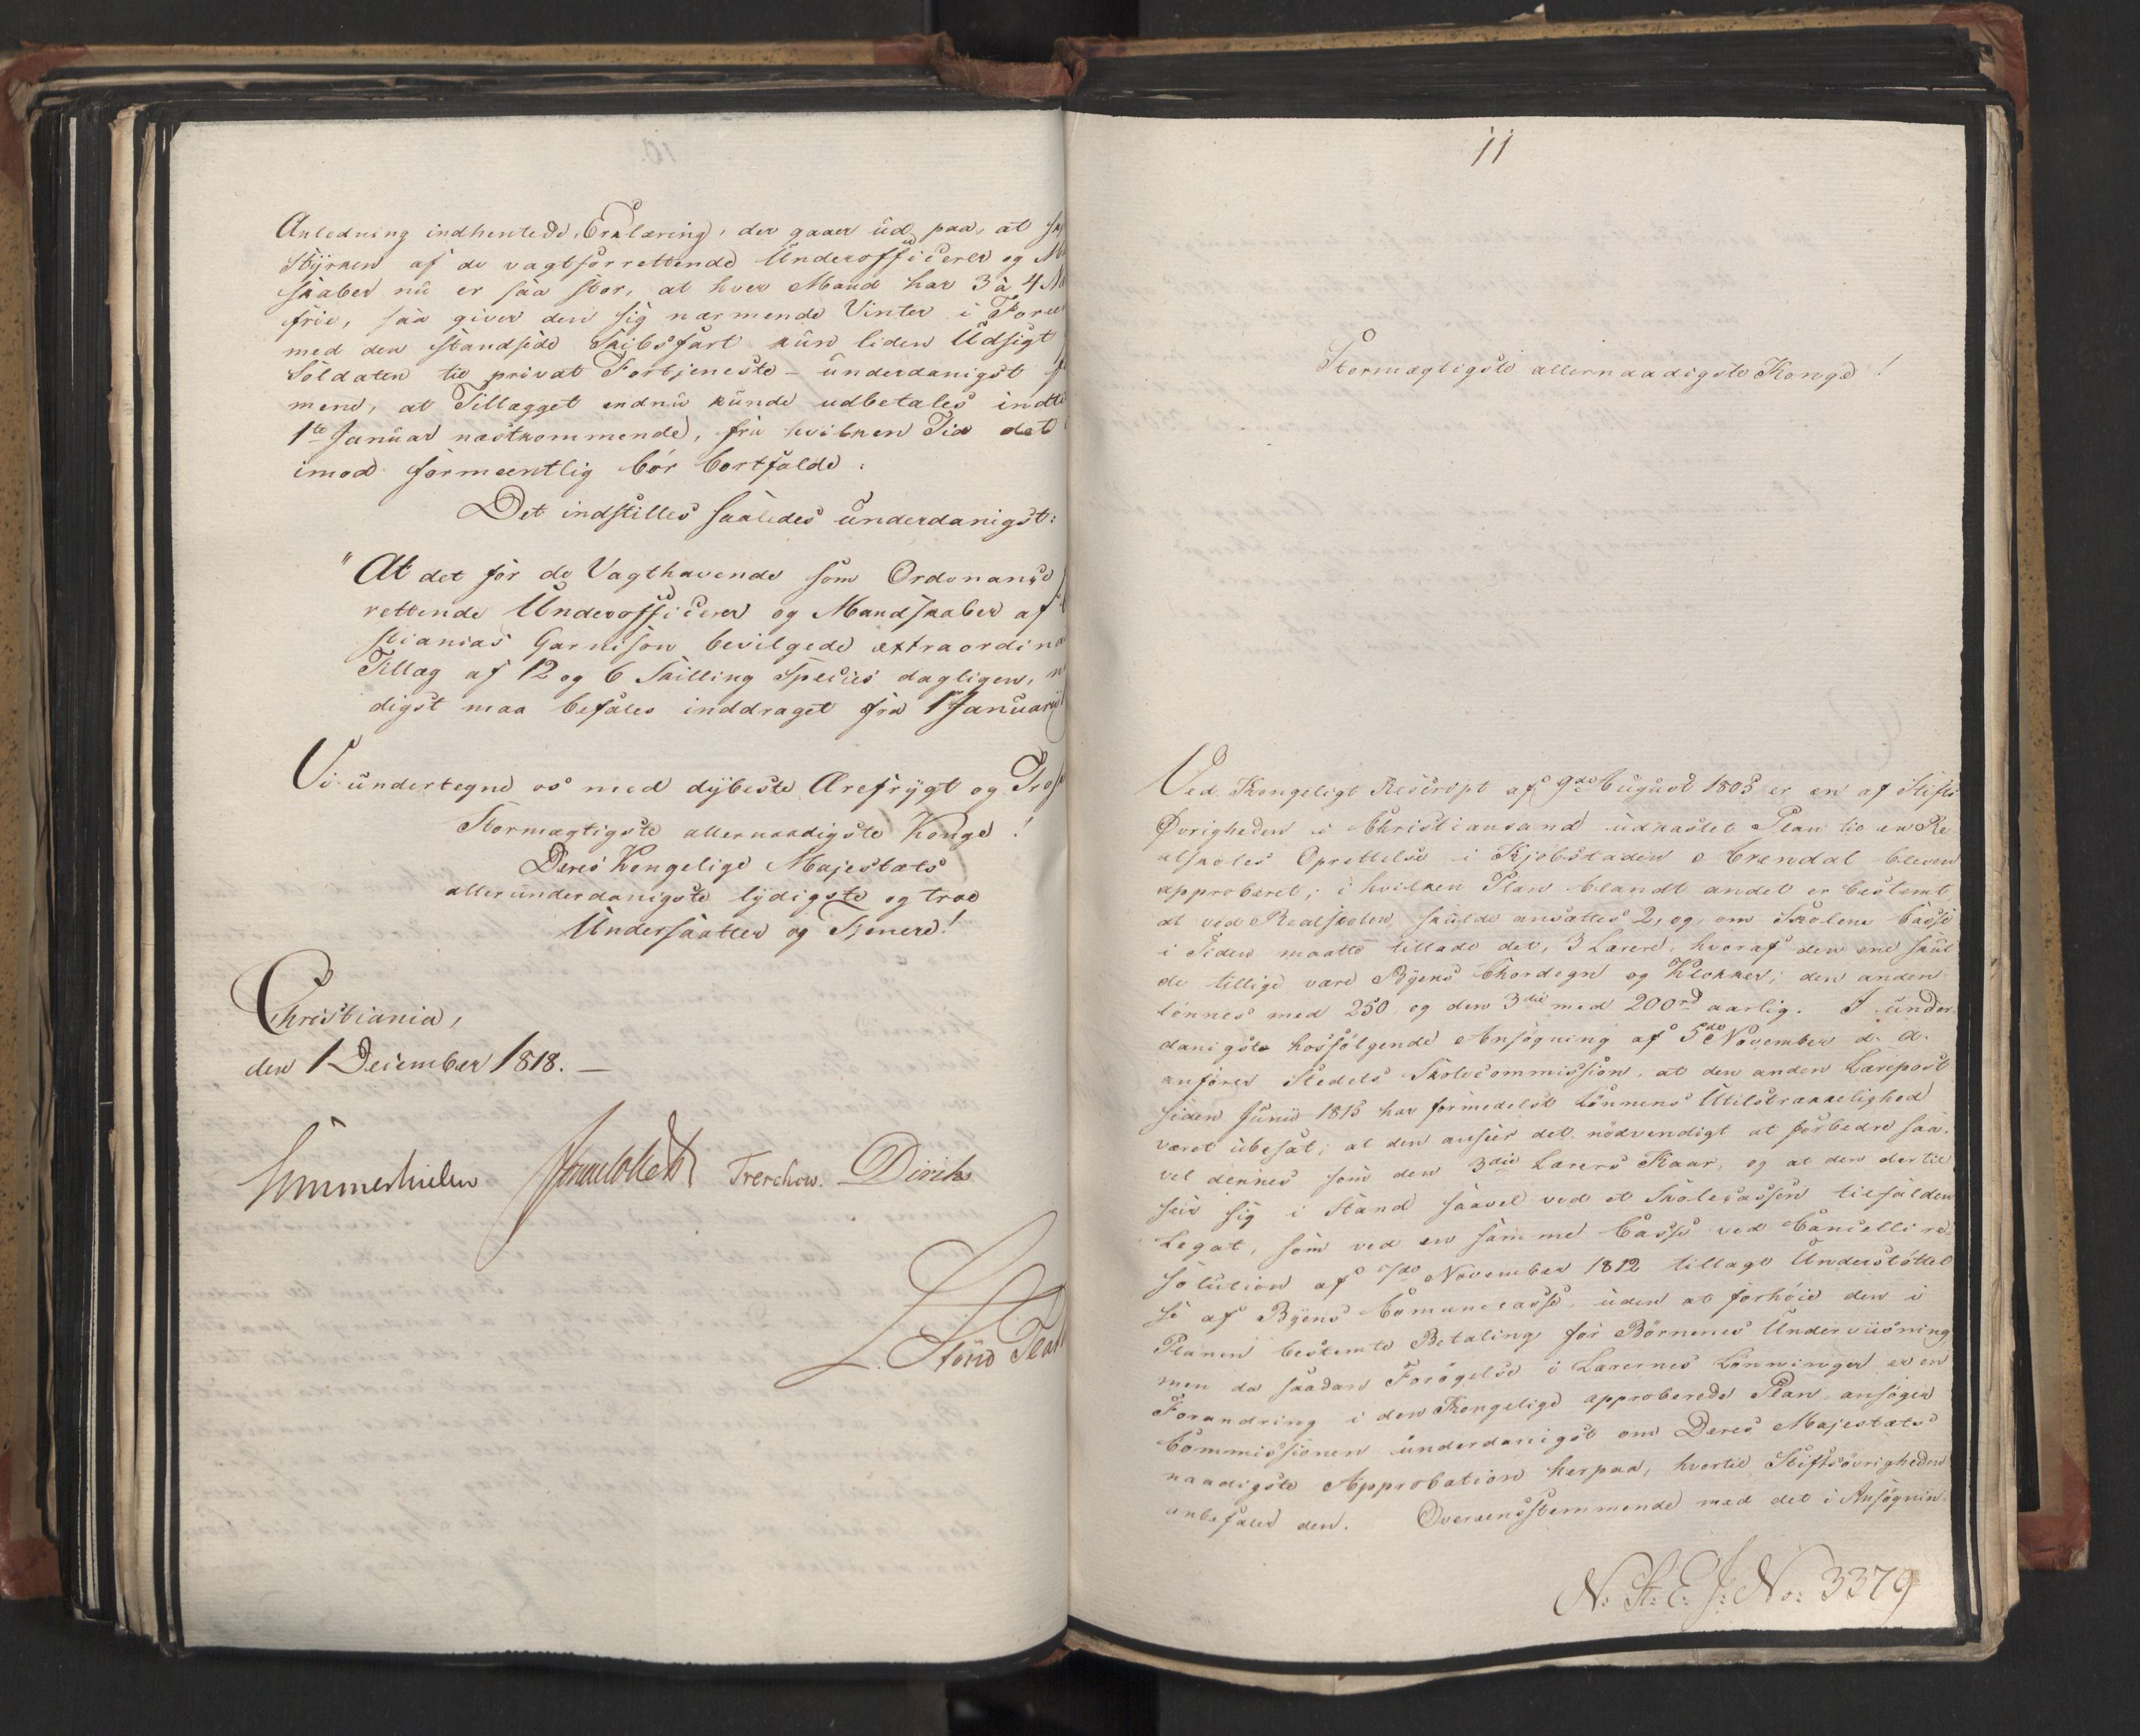 Anledning indhentede, Erklæring, der gaaer ud paa, at
Styrken af de vagtforrettende Underofficerer og
skaber nu er saa stor, at hver Mand har 3 à 4
frie, saa giver den sig nærmende Vinter i
med den standsede Skibsfart kun liden Udsigt
Soldaten til privat Fortjeneste – underdanigst
mene, at Tillægget endnu kunde udbetales
1te Januar næstkommende, fra hvilken Tid det
imod formeentlig bör bortfalde.
Det indstilles saaledes underdanigst:
"At det for de Vagthavende som Ordonants
rettende Underofficerer og Mandskaber af
stianias Garnison bevilgede extraordinæ
Tillæg af 12 og 6 Skilling Species dagligen,
digst maa befales inddraget fra 1 Januarii
Vi undertegne os med dybeste Ærefrygt og
Stormægtigste allernaadigste Konge!
Deres Kongelige Majestæts
allerunderdanigste lydigste og troe
Undersaatter og Tjenere!
Christiania,
den 1 December 1818. –
Sommerhielm Treschow. Diriks
L. Stoud Plat
11
Stormægtigste allernaadigste Konge!
Ved Kongeligt Rescript af 9de August 1805 er en af Stifts
Øvrigheden i Christiansand udkastet Plan til en Re
alskoles Oprettelse i Kjøbstaden Arendal bleven
approberet; i hvilken Plan blandt andet er bestemt
at ved Realskolen skulde ansættes 2, og, om Skolens Casse
i Tiden maatte tillade det, 3 Lærere, hvoraf den ene skul
de tillige være Byens Chordegn og Klokker; den anden
lönnes med 250 og den 3die med 200rd aarlig. I under
danigste hosfölgende Ansögning af 5te November d. A.
anförer Stedets Skolecommission, at den anden Lærepost
siden Junii 1815 har formedelst Lönnens Utilstrækkelighed
været ubesat; at den anseer det nödvendigt at forbedre saa-
vel dennes som den 3die Lærers Kaar, og at den dertil
seer sig i Stand saavel ved et Skolecassen tilfalden
Legat, som ved en samme Casse ved Cancellire-
solution af 7de November 1812 tillagt Understöttel
se af Byens Comunecasse, uden at forhöie den i
Planen bestemte Betaling for Börnenes Underviisning,
men da saadan Forögelse i Lærernes Lönninger er en
Forandring i den Kongelige approberede Plan, ansöger
Commissionen underdanigst om Deres Majestæts
naadigste Approbation herpaa, hvortil Stiftsövrigheden
anbefaler den. Overeensstemmende med det i Ansögnin-
N. St. E. J. No: 3379